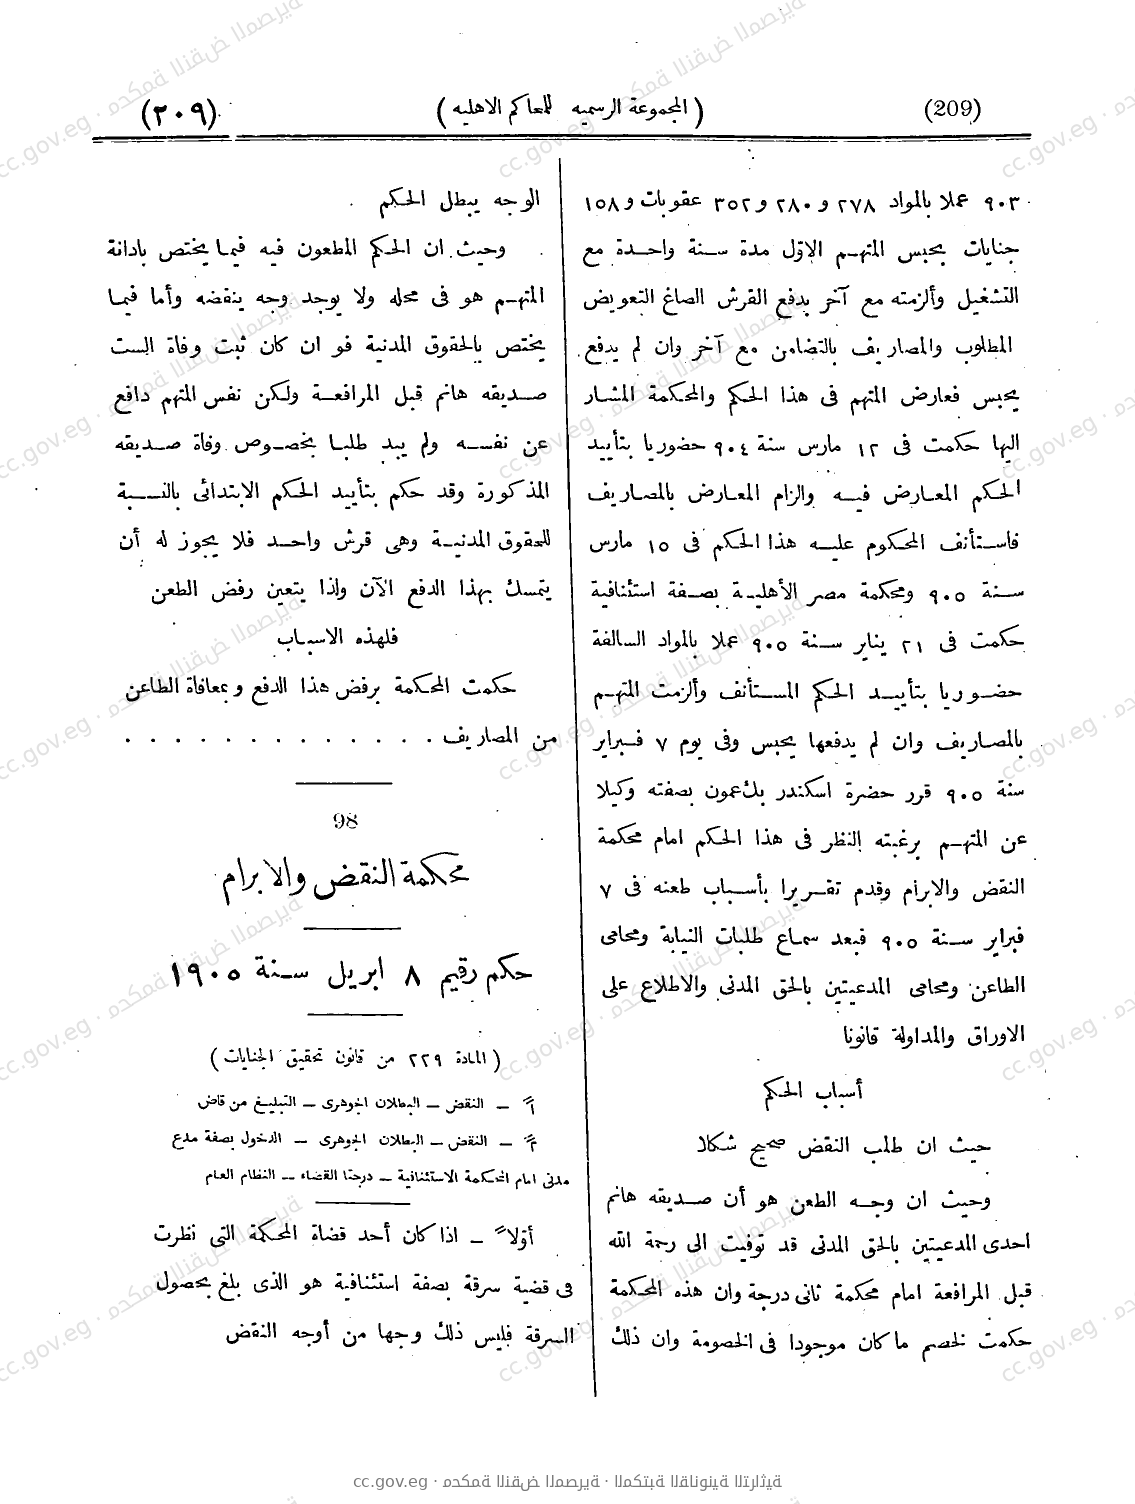 (209) (المجموعة الرسمية للمحاكم الاهلية) (٢٠٩)
٩٠٣ عملا بالمواد ٢٧٨ و ٢٨٠ و ٣٥٢ عقوبات و ١٥٨
جنايات بحبس المتهم الاوّل مدة سنة واحدة مع
التشغيل وألزمته مع آخر بدفع القرش الصاغ التعويض
المطلوب والمصاريف بالتضامن مع آخر وان لم يدفع
يحبس فعارض المتهم فى هذا الحكم والمحكمة المشار
اليها حكمت فى ١٢ مارس سنة ٩٠٤ حضوريا بتأييد
الحكم المعارض فيه والزام المعارض بالمصاريف
فاستأنف المحكوم عليه هذا الحكم فى ١٥ مارس
سنة ٩٠٥ ومحكمة مصر الأهلية بصفة استئنافية
حكمت فى ٢١ يناير سنة ٩٠٥ عملا بالمواد السالفة
حضوريا بتأييد الحكم المستأنف وألزمت المتهم
بالمصاريف وان لم يدفعها يحبس وفى يوم ٧ فبراير
سنة ٩٠٥ قرر حضرة اسكندر بك عمون بصفته وكيلا
عن المتهم برغبته النظر فى هذا الحكم امام محكمة
النقض والابرام وقدم تقريرا بأسباب طعنه فى ٧
فبراير سنة ٩٠٥ فبعد سماع طلبات النيابة ومحامى
الطاعن ومحامى المدعيتين بالحق المدنى والاطلاع على
الاوراق والمداولة قانونا
أسباب الحكم
حيث ان طلب النقض صحيح شكلا
وحيث ان وجه الطعن هو أن صديقه هانم
احدى المدعيتين بالحق المدنى قد توفيت الى رحمة الله
قبل المرافعة امام محكمة ثانى درجة وان هذه المحكمة
حكمت لخصم ما كان موجودا فى الخصومة وان ذلك
الوجه يبطل الحكم
وحيث ان الحكم المطعون فيه فيما يختص بادانة
المتهم هو فى محله ولا يوجد وجه ينقضه وأما فيما
يختص بالحقوق المدنية فو ان كان ثبت وفاة الست
صديقه هانم قبل المرافعة ولكن نفس المتهم دافع
عن نفسه ولم يبد طلبا بخصوص وفاة صديقه
المذكورة وقد حكم بتأييد الحكم الابتدائى بالنسبة
للحقوق المدنية وهى قرش واحد فلا يجوز له أن
يتمسك بهذا الدفع الآن ولذا يتعين رفض الطعن
فلهذه الاسباب
حكمت المحكمة برفض هذا الدفع وبمعافاة الطاعن
من المصاريف . . . . . . . . . . . . .
98
محكمة النقض والابرام
حكم رقيم ٨ ابريل سنة ١٩٠٥
(المادة ٢٢٩ من قانون تحقيق الجنايات)
١ً – النقض – البطلان الجوهرى – التبليغ من قاض
٢ً – النقض – البطلان الجوهرى – الدخول بصفة مدع
مدنى امام المحكمة الاستئنافية – درجتا القضاء – النظام العام
أوّلاً – اذا كان أحد قضاة المحكمة التى نظرت
فى قضية سرقة بصفة استئنافية هو الذى بلغ بحصول
السرقة فليس ذلك وجها من أوجه النقض
cc.gov.eg · محكمة النقض المصرية · المكتبة القانونية التراثية